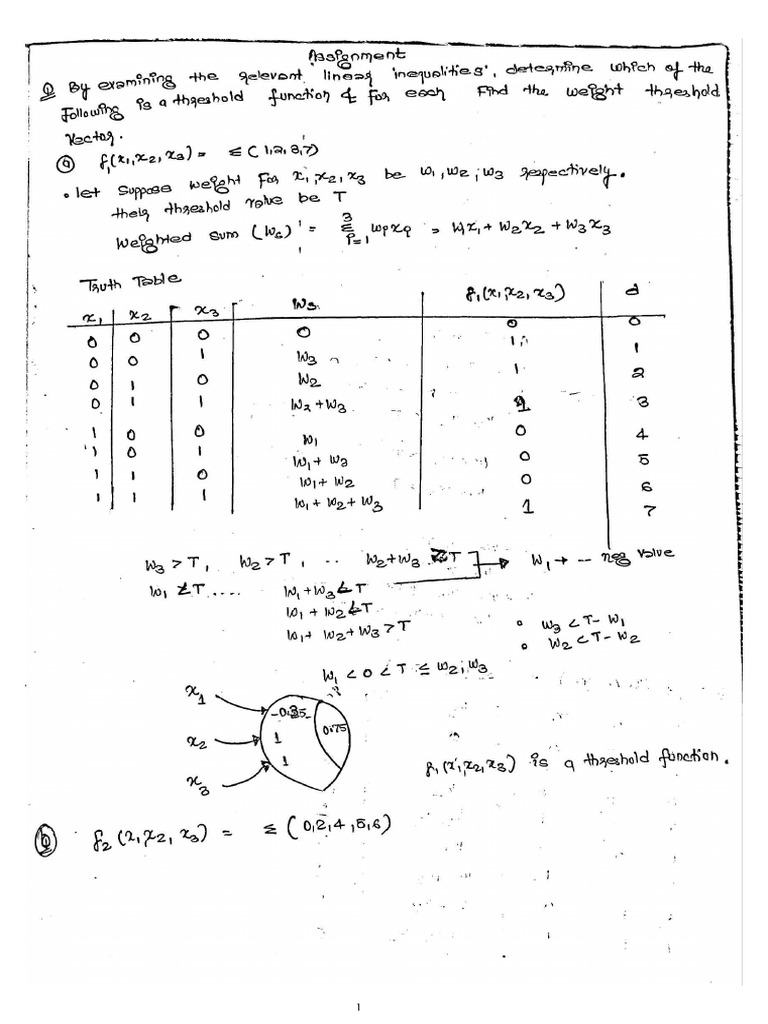 Assignment
Q By examining the relevant linear inequalities, determine which of the
following is a threshold function & for each Find the weight threshold
vector.
a f₁(x₁,x₂,x₃) = Σ(1,2,3,7)
• let suppose weight for x₁,x₂,x₃ be w₁,w₂,w₃ respectively.
their threshold value be T
Weighted sum (Ws) = 3Σi=1 wixi = w₁x₁+w₂x₂+w₃x₃
Truth Table
x₁ x₂ x₃ Ws f₁(x₁,x₂,x₃) d
0 0 0 0 0 0
0 0 1 w₃ 1 1
0 1 0 w₂ 1 2
0 1 1 w₂+w₃ 1 3
1 0 0 w₁ 0 4
1 0 1 w₁+w₃ 0 5
1 1 0 w₁+w₂ 0 6
1 1 1 w₁+w₂+w₃ 1 7
w₃>T, w₂>T, .. w₂+w₃ ≥T → w₁→ -- neg value
w₁ <T.... w₁+w₃<T
w₁+w₂<T
w₁+w₂+w₃>T
• w₃<T-w₁
• w₂<T-w₂
w₁<0<T≤w₂,w₃
x₁ x₂ x₃
1
1
0.75
f₁(x₁,x₂,x₃) is a threshold function.
b f₂(x₁,x₂,x₃) = Σ(0,2,4,5,6)
1